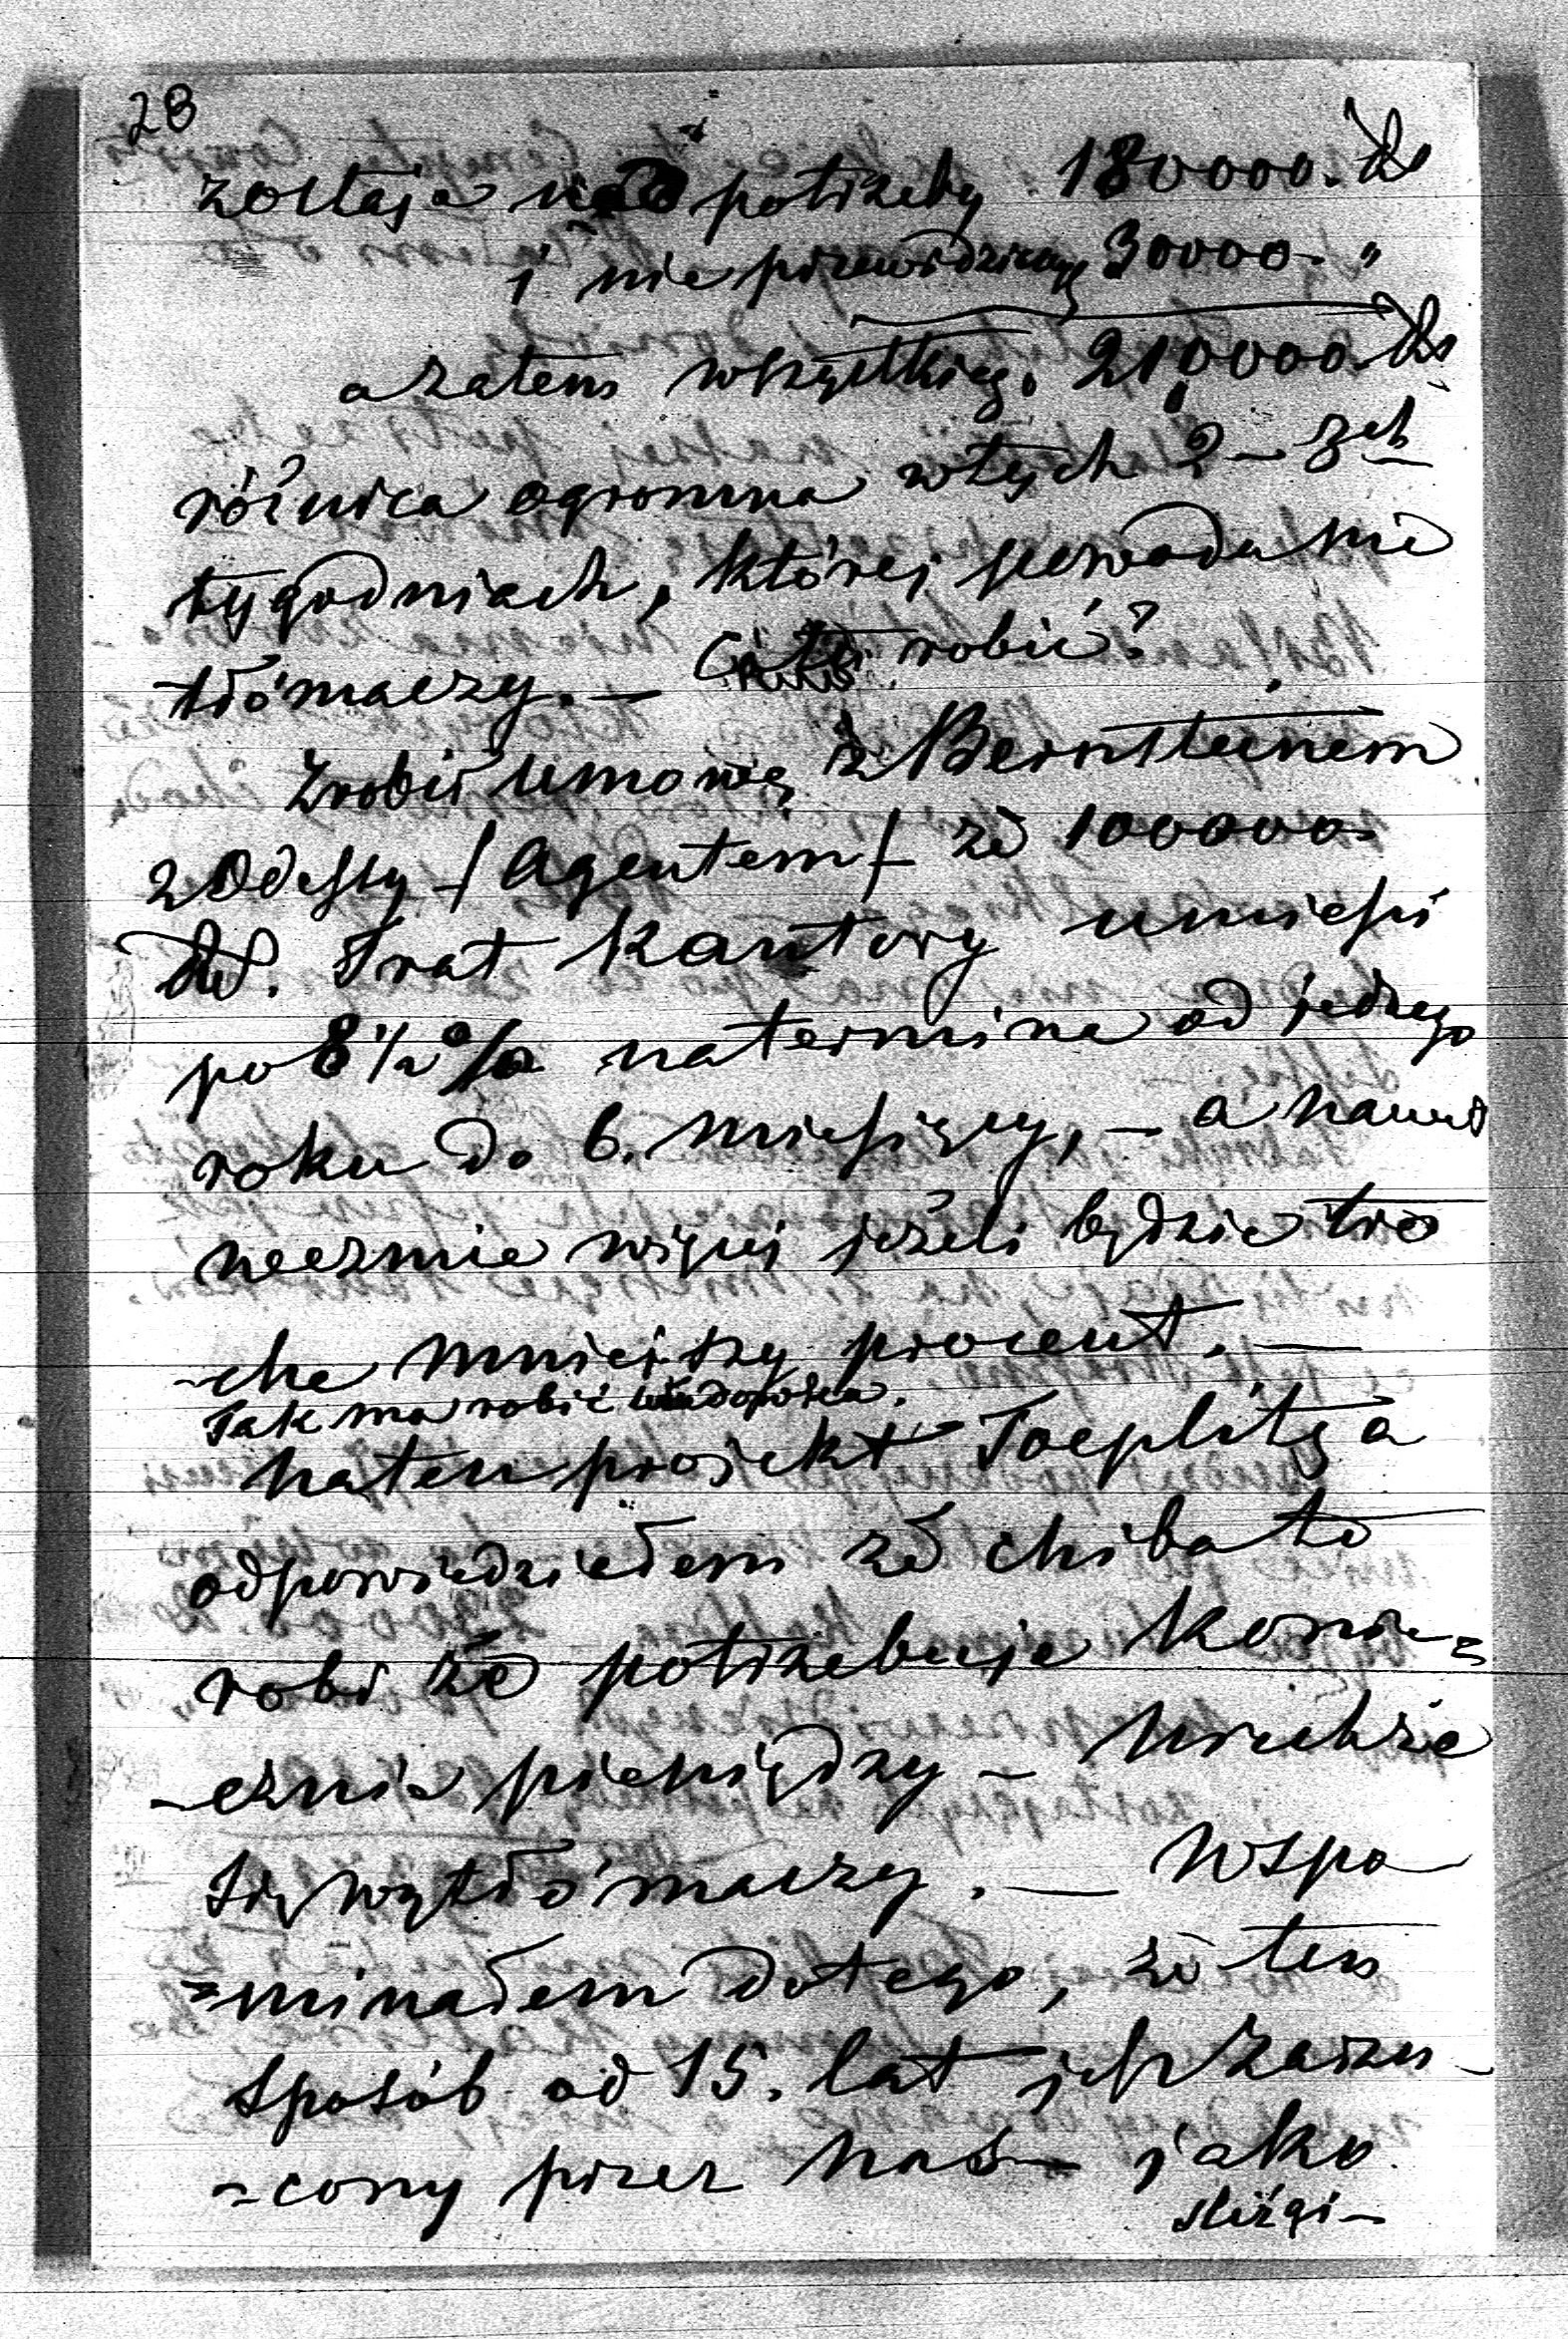 28
zostaje na potrzeby 180000. Rs
i nie przewidziany 30000. "
a zatem wszystkieg. 210000. Rs
różnica ogromna w tych 2 – 3ch
tygodniach, której powodu nie
tłómaczy. – robić?
Zrobił umowę z Bernsteinem
z Odessy / Agentem / że 100000.
Rs. Trat Kantory umieści
po 8 1/2 % na termina od jednego
roku do 6. miesięcy, – a nawet
weźmie więcej jeżeli będzie tro
-che mniejszy procent. –
Tak ma robić
na ten projekt Toeplitza
odpowiedziałem że chiba to
robi że potrzebuje konie=
-cznie pieniędzy –
się wytłómaczy. – Wspo
=minałem do tego, że ten
sposób od 15. lat jest zarzu-
-cony przez nas – jako
śliźgi-